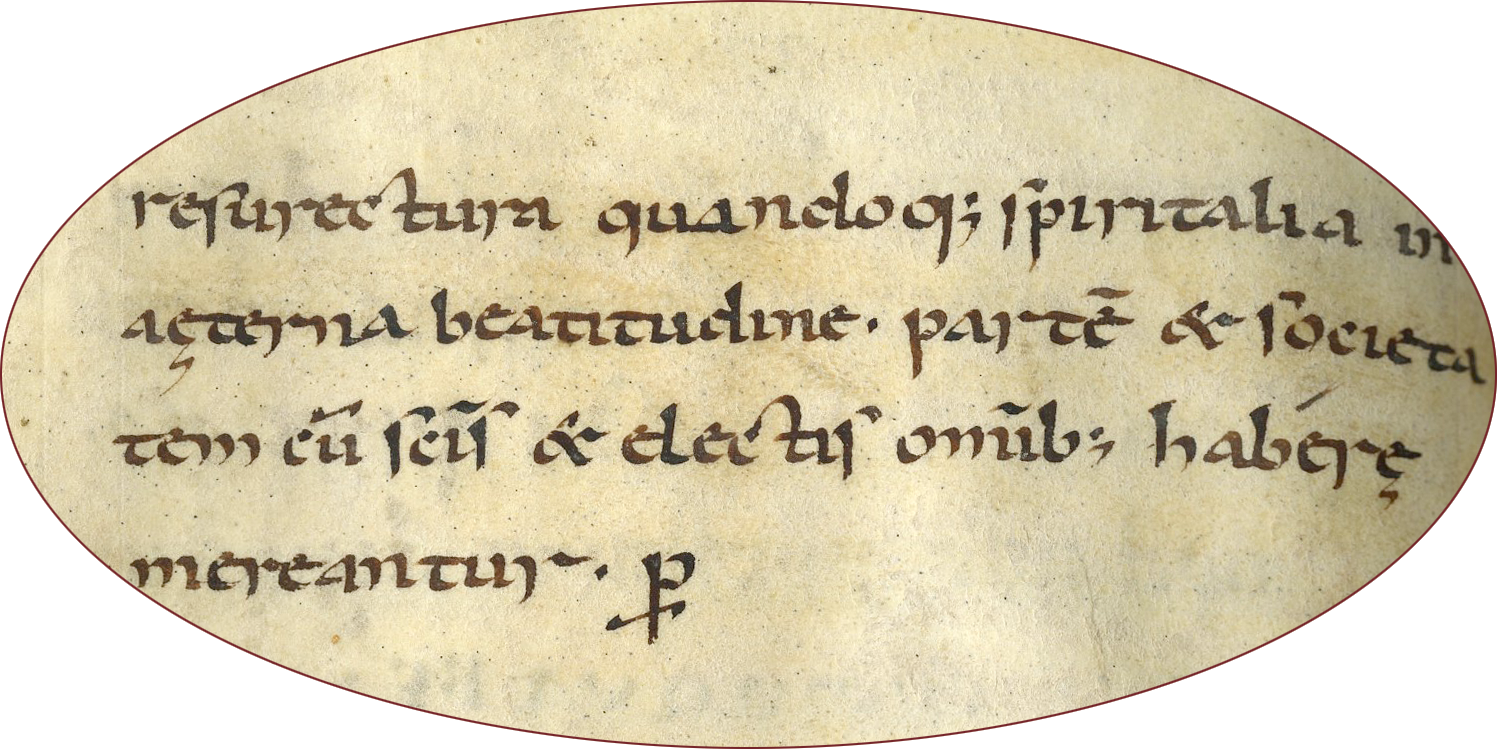 resurectura quandoq; spiritalia in
aęterna beatitudine· partē & societa
tem cū sc̄is & electis om̄ib; habérę
mereantur· ꝑ